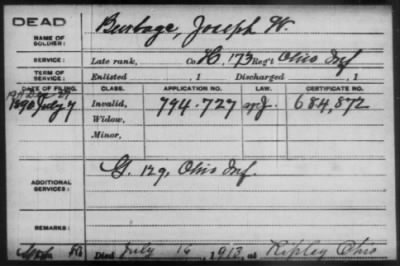 DEAD
NAME OF SOLDIER: Burbage, Joseph W.
SERVICE: Late rank, Co. H, 173 Reg't Ohio Inf
TERM OF SERVICE: Enlisted , 1 Discharged , 1
DATE OF FILING. CLASS. APPLICATION NO. LAW. CERTIFICATE NO.
1890 July 7 Invalid, 794.727 J. 684,872
Widow,
Minor,
ADDITIONAL SERVICES: G. 129, Ohio Inf.
REMARKS:
Died July 16, 1913, at Ripley Ohio